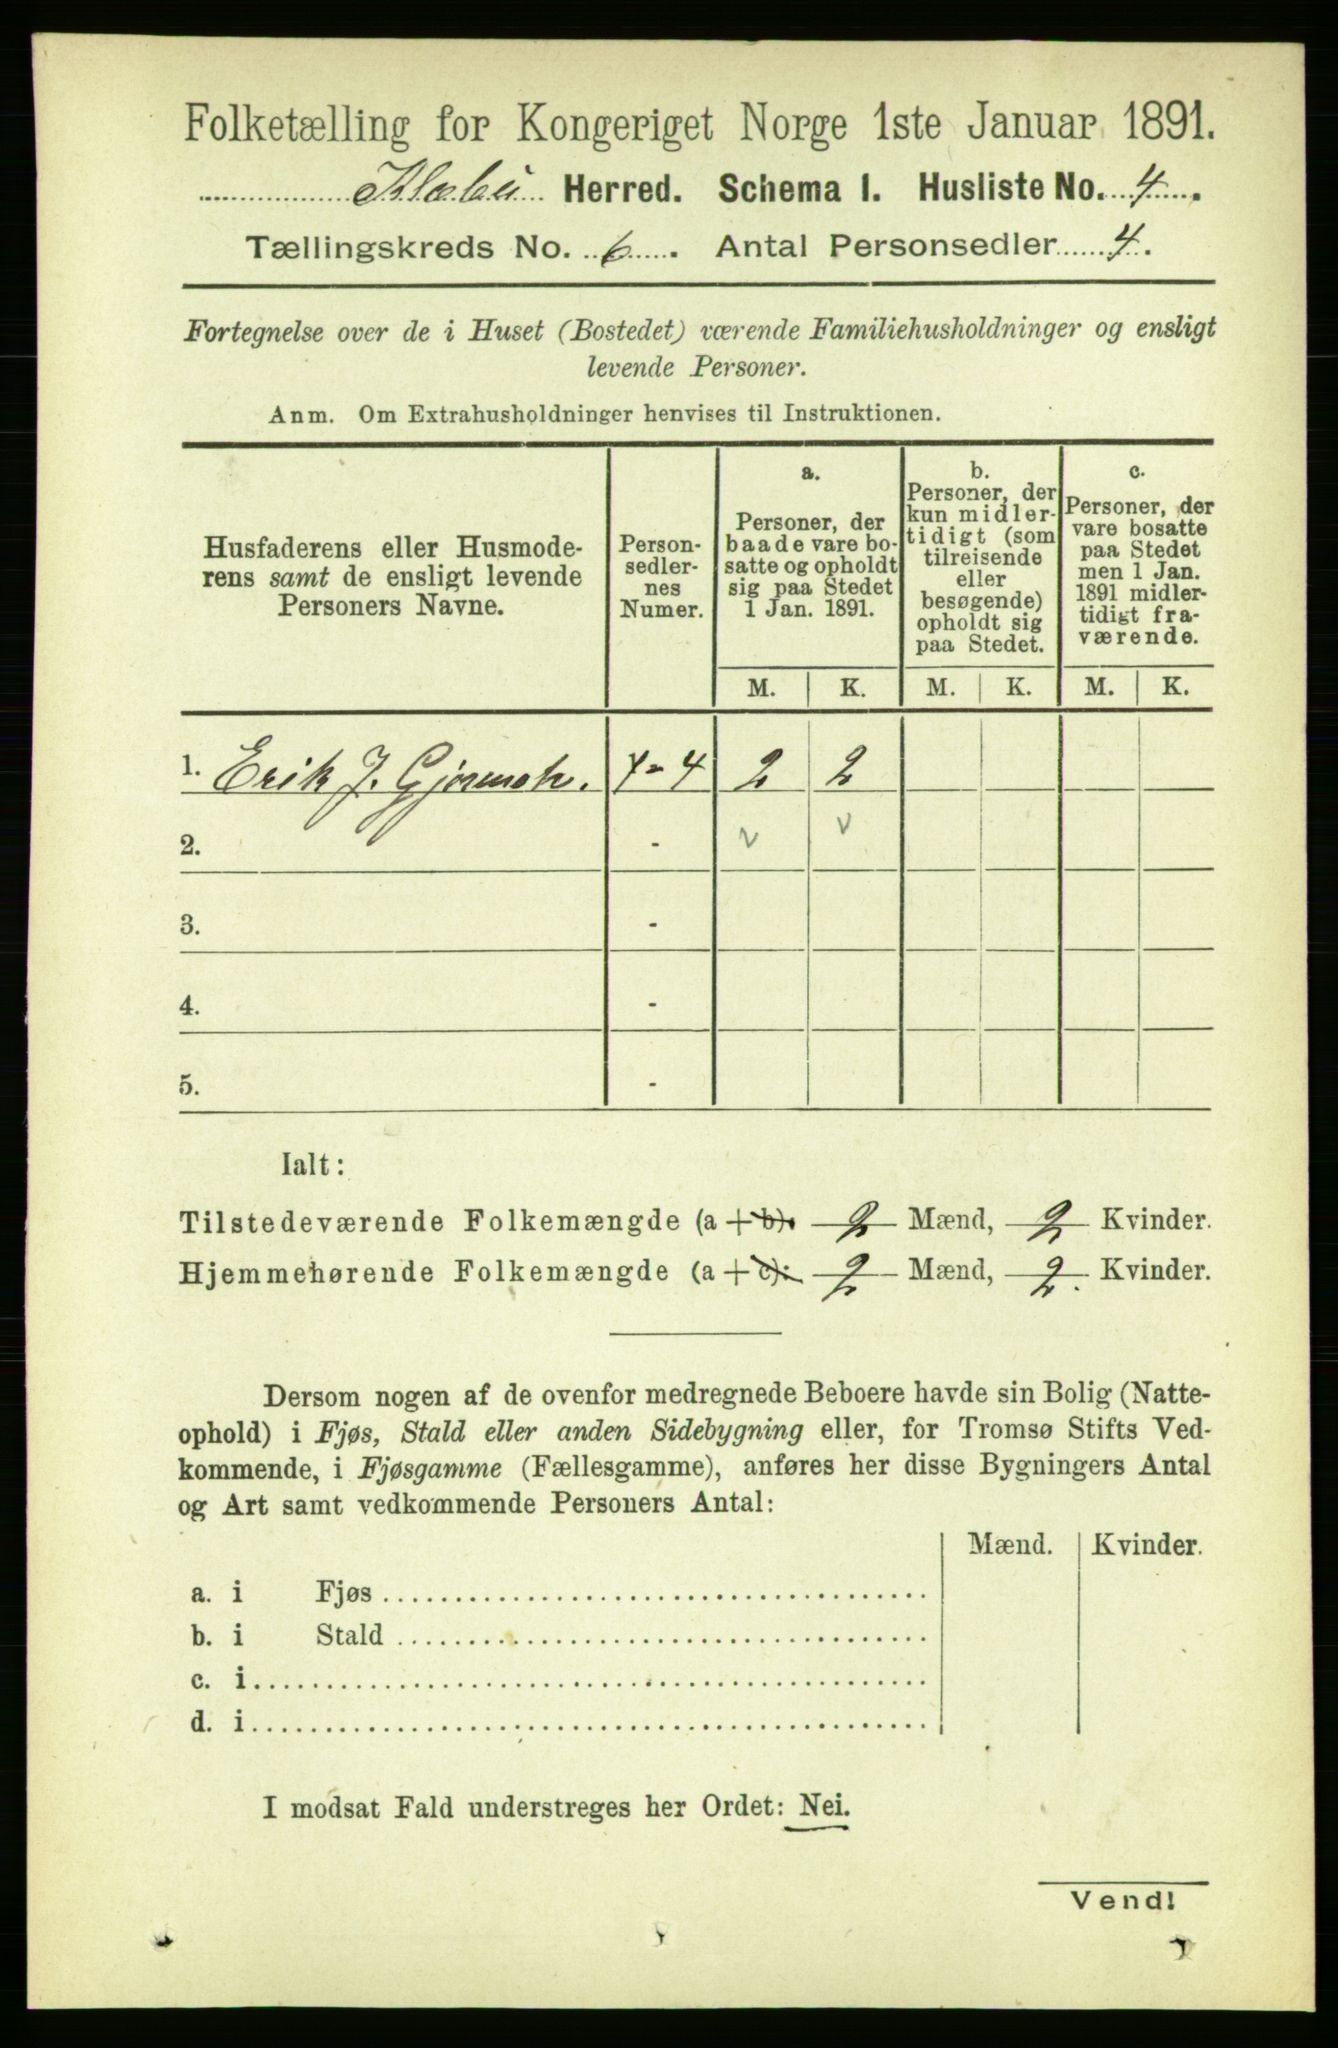 Folketælling for Kongeriget Norge 1ste Januar 1891.
Klæbu Herred. Schema 1. Husliste No. 4.
Tællingskreds No. 6. Antal Personsedler 4.
Fortegnelse over de i Huset (Bostedet) værende Familiehusholdninger og ensligt
levende Personer.
Anm. Om Extrahusholdninger henvises til Instruktionen.
Husfaderens eller Husmode-
rens samt de ensligt levende
Personers Navne.
Person-
sedler-
nes
Numer.
a.
Personer, der
baade vare bo-
satte og opholdt
sig paa Stedet
1 Jan. 1891.
b.
Personer, der
kun midler-
tidigt (som
tilreisende
eller
besøgende)
opholdt sig
paa Stedet.
c.
Personer, der
vare bosatte
paa Stedet
men 1 Jan.
1891 midler-
tidigt fra-
værende.
M. K. M. K. M. K.
1. Erik J. - 4 2 2
2. - v v
3. -
4. -
5. -
Ialt:
Tilstedeværende Folkemængde (a + b). 2 Mænd, 2 Kvinder.
Hjemmehørende Folkemængde (a + c): 2 Mænd, 2. Kvinder.
Dersom nogen af de ovenfor medregnede Beboere havde sin Bolig (Natte-
ophold) i Fjøs, Stald eller anden Sidebygning eller, for Tromsø Stifts Ved-
kommende, i Fjøsgamme (Fællesgamme), anføres her disse Bygningers Antal
og Art samt vedkommende Personers Antal:
Mænd. Kvinder.
a. i Fjøs
b. i Stald
c. i
d. i
I modsat Fald understreges her Ordet: Nei.
Vend!